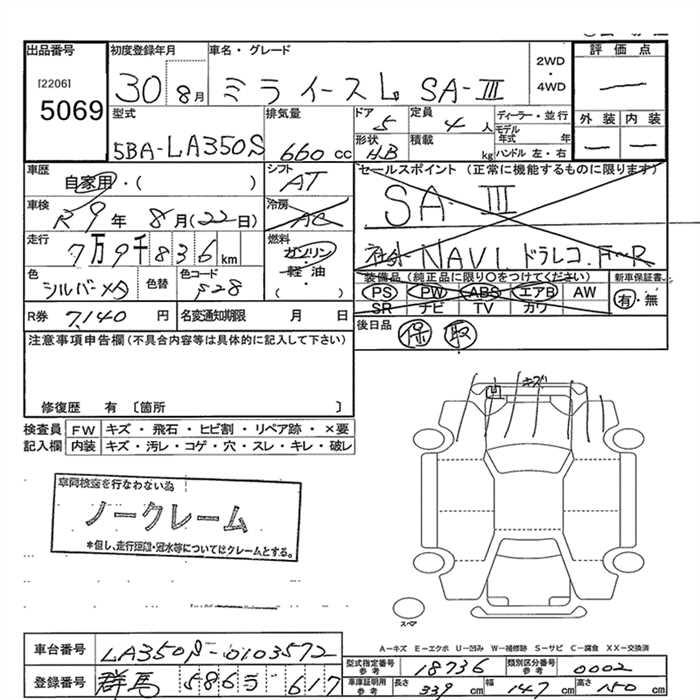 出品番号
[2206]
5069
初度登録年月
30 8月
車名・グレード
ミライース L SA-III
2WD
・
4WD
評価点
型式
5BA-LA350S
排気量
660 cc
ドア
5
定員
4 人
形状
HB
積載
kg
ディーラー・並行
モデル年式 年
ハンドル 左・右
外装 内装
車歴
自家用・( )
シフト
AT
セールスポイント (正常に機能するものに限ります)
SA-III
社外 NAVI ドラレコ. F-R
車検
R9年 8月(22日)
冷房
AC
走行
7万9千836km
燃料
ガソリン
・
軽油
・
( )
色
シルバーメタ
色替
色コード
S28
装備品(純正品に限り○をつけてください)
PS PW ABS エアB AW
SR ナビ TV カワ
新車保証書
有・無
R券 7,140 円
名変通知期限 月 日
後日品 保 取
注意事項申告欄(不具合内容等は具体的に記入して下さい)
修復歴 有 〔箇所 〕
検査員 FW キズ・飛石・ヒビ割・リペア跡・×要
記入欄 内装 キズ・汚レ・コゲ・穴・スレ・キレ・破レ
車両検査を行なわない為
ノークレーム
*但し、走行距離・冠水等についてはクレームとする。
凹 キズ
スペア
A－キズ E－エクボ U－凹み W－補修跡 S－サビ C－腐食 XX－交換済
車台番号 LA350S-0103572
登録番号 群馬 586 617
型式指定番号 参考 18736 類別区分番号 参考 0002
車庫証明用 参考 長さ 339 cm 幅 147 cm 高さ 150 cm